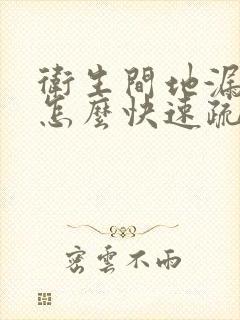 衛生間地漏
怎麼快速疏
密雲不雨